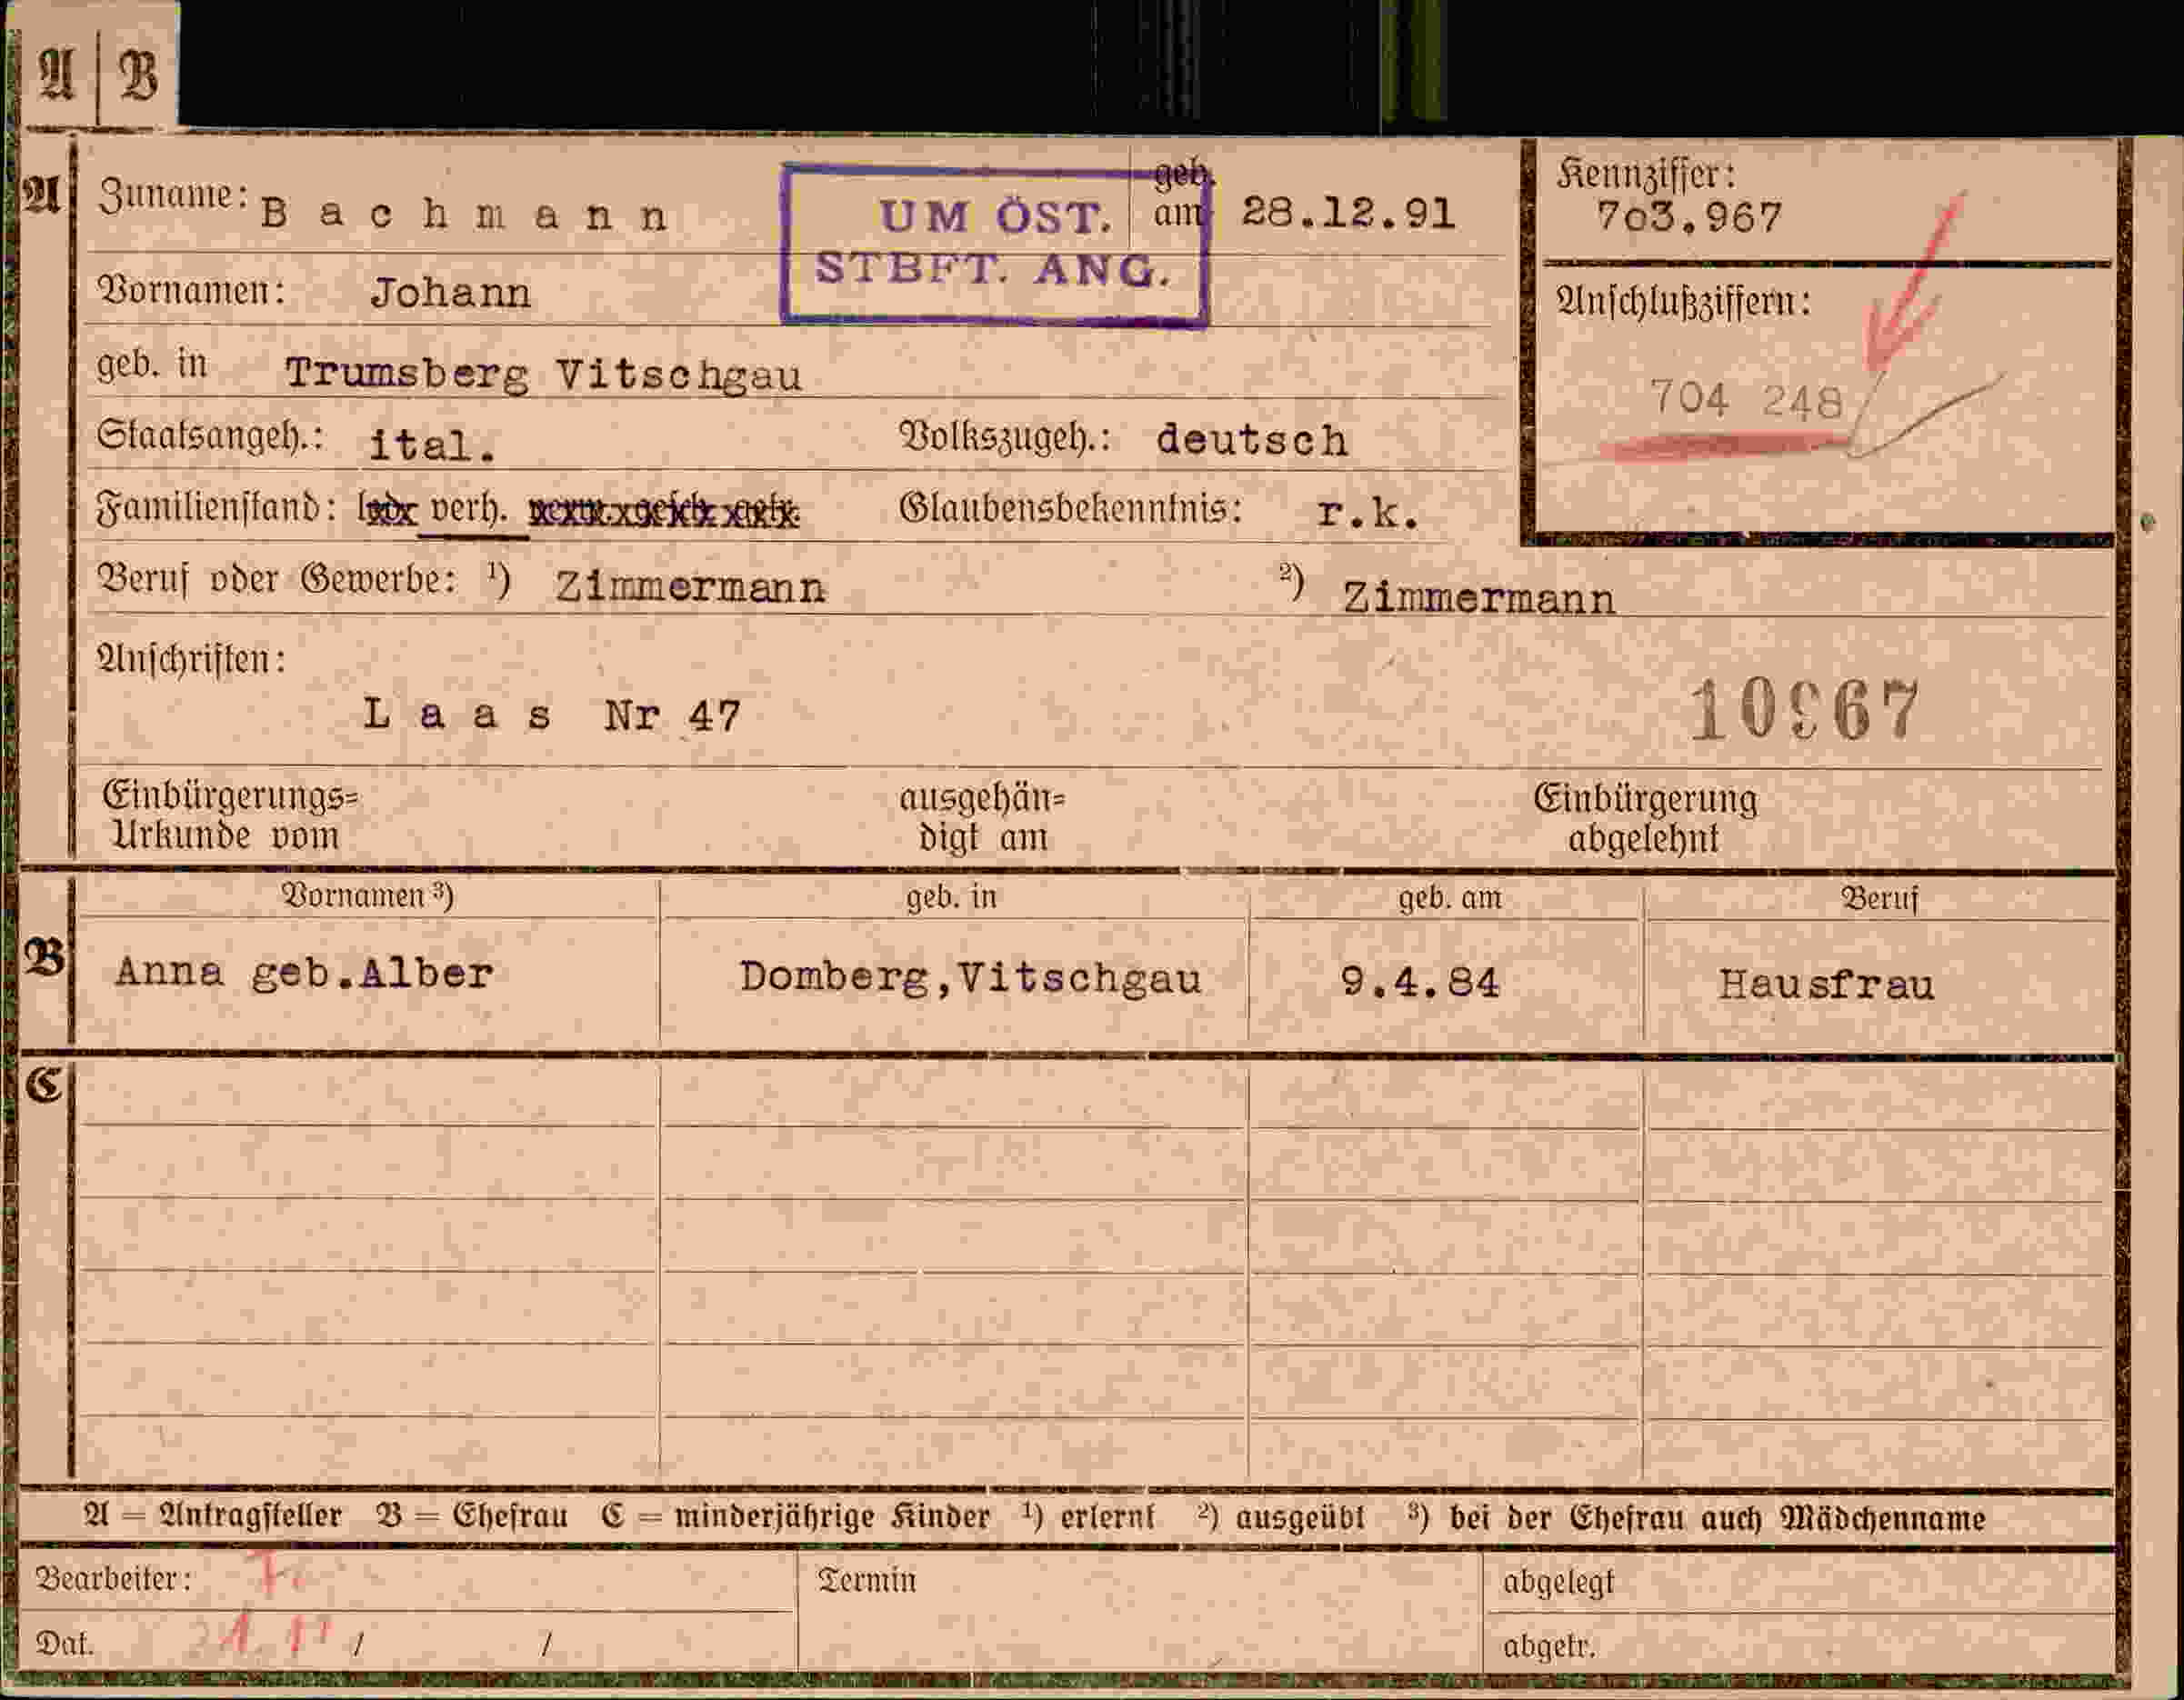 A | B
A Zuname: Bachmann geb. am 28.12.91
UM ÖST. STBFT. ANG.
Kennziffer: 703.967
Vornamen: Johann
Anschlußziffern:
704 248
geb. in Trumsberg Vitschgau
Staatsangeh.: ital. Volkszugeh.: deutsch
Familienstand: verh. Glaubensbekenntnis: r.k.
Beruf oder Gewerbe: ¹) Zimmermann ²) Zimmermann
Anschriften:
Laas Nr 47
10967
Einbürgerungs= ausgehän= Einbürgerung
Urkunde vom digt am abgelehnt
Vornamen ³) geb. in geb. am Beruf
B Anna geb.Alber Domberg,Vitschgau 9.4.84 Hausfrau
C
A = Antragsteller B = Ehefrau C = minderjährige Kinder ¹) erlernt ²) ausgeübt ³) bei der Ehefrau auch Mädchenname
Bearbeiter: Termin abgelegt
Dat. / / abgetr.